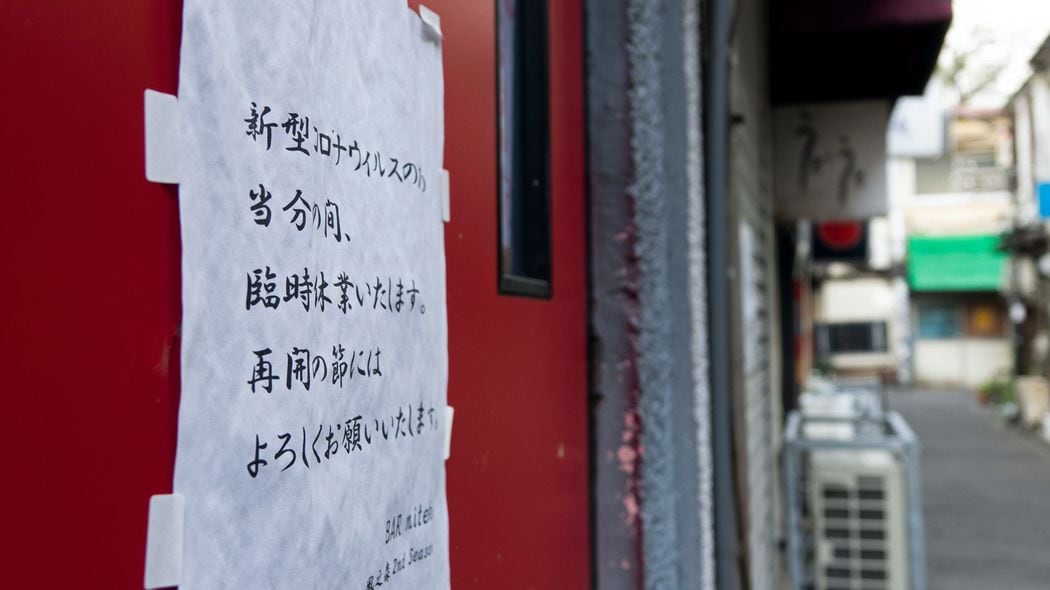 新型コロナウィルスの
当分の間、
臨時休業いたします。
再開の節には
よろしくお願いいたします。
BAR mite
2nd Seaso